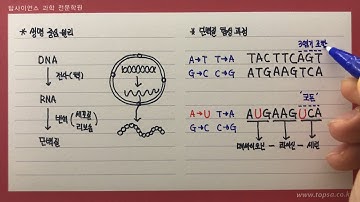 탑사이언스 과학 전문학원
* 생명 중심 원리
DNA
전사(핵)
RNA
번역(세포질 리보솜)
단백질
* 단백질 합성 과정
3염기 조합
A→T T→A TACTTCAGT
G→C C→G ATGAAGTCA
'코돈'
A→U T→A AUGAAGUCA
G→C C→G
메싸이오닌 - 라이신 - 세린
www.topsa.co.kr